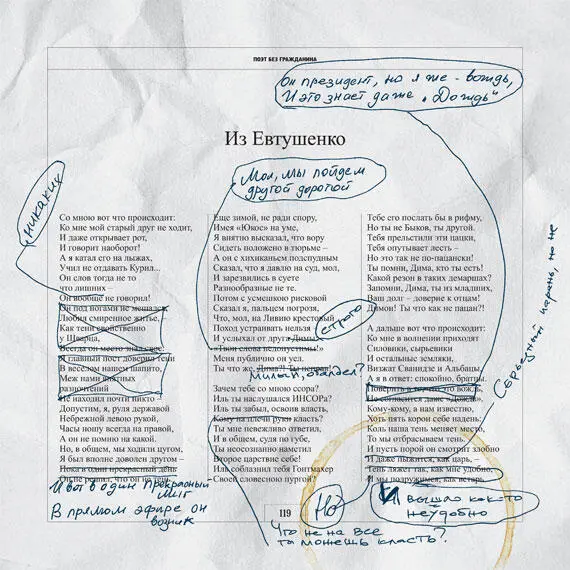 ПОЭТ БЕЗ ГРАЖДАНИНА
Он президент, но я же - вождь,
И это знает даже „Дождь“
Из Евтушенко
Мол, мы пойдем
другой дорогой
никаких
Со мною вот что происходит:
Ко мне мой старый друг не ходит,
И даже открывает рот,
И говорит наоборот!
А я катал его на лыжах,
Учил не отдавать Курил...
Он слов тогда не то
что лишних –
Он вообще не говорил!
Он под ногами не мешался,
Любил смиренное житье.
Как тени свойственно
у Шварца,
Всегда он место знал свое.
Я главный пост доверил тени
В веселом нашем шапито,
Меж нами внятных
разночтений
Не находил почти никто –
Допустим, я, руля державой
Небрежной левою рукой,
Часы ношу всегда на правой,
А он не помню на какой.
Но, в общем, мы ходили цугом,
Я был вполне доволен другом –
Пока в один прекрасный день
Он не решил, что он не тень.
И вот в один прекрасный
миг
В прямом эфире он
возник
Еще зимой, не ради спору,
Имея «Юкос» на уме,
Я внятно высказал, что вору
Сидеть положено в тюрьме –
А он с хихиканьем подспудным
Сказал, что я давлю на суд, мол,
И зарезвились в суете
Разнообразные не те.
Потом с усмешкою рисковой
Сказал я, пальцем погрозя,
Что, мол, на Ливию крестовый
Поход устраивать нельзя –
строго
И услыхал от друга Димы:
«Твои слова недопустимы!»
Меня публично он уел.
Ты что же, Дима?! Ты неправ!
милый, обалдел?
Зачем тебе со мною ссора?
Иль ты наслушался ИНСОРа?
Иль ты забыл, освоив власть,
Кому ты плечи руки класть?
Ты мне невежливо ответил,
И в общем, судя по губе,
Ты неосознанно наметил
Второе царствие себе!
Иль соблазнил тебя Гонтмахер
Своей словесною пургой?
Но
Что не на все
ты можешь класть?
Тебе его послать бы в рифму,
Но ты не Быков, ты другой.
Тебя прельстили эти цацки,
Тебя опутывает лесть –
Но это так не по-пацански!
Ты помни, Дима, кто ты есть!
Какой резон в таких демаршах?
Запомни, Дима, ты из младших,
Ваш долг – доверие к отцам!
Димон! Ты что как не пацан?!
А дальше вот что происходит:
Ко мне в волнении приходят
Силовики, сырьевики
И остальные земляки,
Визжат Сванидзе и Альбацы,
А я в ответ: спокойно, братцы.
Поверить в время это вождь,
Но согласится даже «Дождь».
Кому-кому, а нам известно,
Хоть пять корон себе надень:
Коль наша тень меняет место,
То мы отбрасываем тень,
И пусть порой он смотрит злобно
И даже пыжится, как царь, –
Тень ляжет так, как мне удобно,
И мы подружимся, как встарь.
И вышло как-то
неудобно
Серьезный парень, но не
119